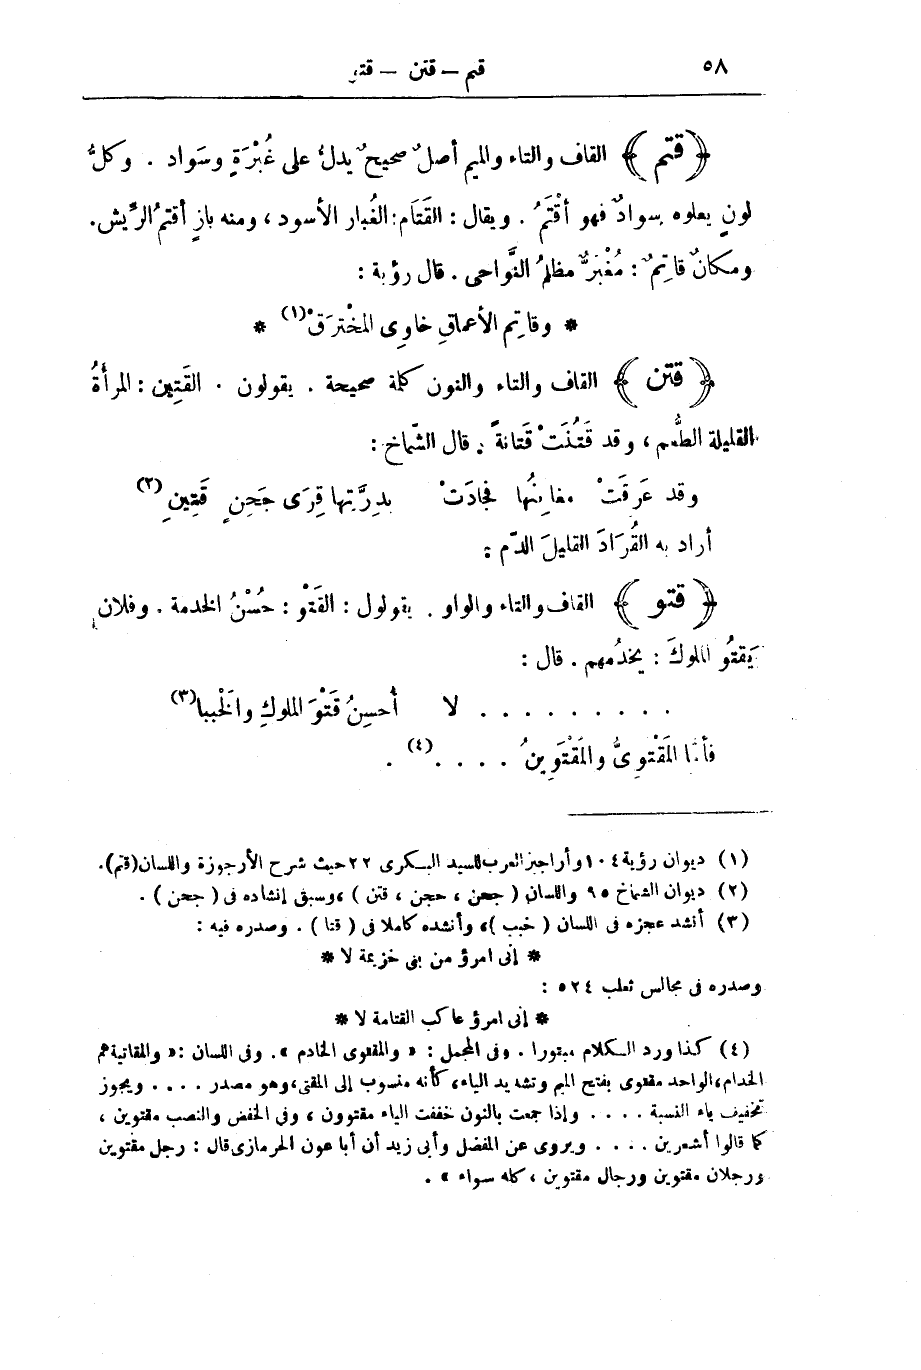 ٥٨
قتم — قتن — قتو
﴿ قتم ﴾ القاف والتاء والميم أصلٌ صحيحٌ يدلُّ على غُبْرَةٍ وسَواد . وكلُّ
لونٍ يعلوه سوادٌ فهو أقْتَمُ . ويقال : القَتَام: الغُبار الأسود ، ومنه بازٍ أقتمُ الرِّيش.
ومكانٌ قاتِمٌ : مُغْبَرٌّ مظلمُ النَّواحى . قال رؤبة :
* وقاتِمِ الأعماقِ خاوِى المخْترَقْ (١) *
﴿ قتن ﴾ القاف والتاء والنون كلمة صحيحة . يقولون . القَتِين : المرأةُ
القليلة الطُّعم ، وقد قَتُنَتْ قَتانةً . قال الشّماخ :
وقد عَرِقَتْ مغابِنُها فجادَتْ بدِرَّتِها قِرَى جَحِنٍ قَتِينِ (٢)
أراد به القُرَادَ القليلَ الدّم :
﴿ قتو ﴾ القاف والتاء والواو . يقولول : القَتْو : حُسْنُ الخدمة . وفلان
يَقتُو الملوكَ : يخدُمهم . قال :
. . . . . . . . . لا أحسِنُ قَتْوَ الملوكِ والَخْببا (٣)
فأنّا المَقْتوِىُّ والمَقْتَوِينُ . . . . (٤) .
(١) ديوان رؤبة ١٠٤ وأراجيز العرب للسيد البكرى ٢٢ حيث شرح الأرجوزة واللسان (قتم).
(٢) ديوان الشماخ ٩٥ واللسان ( جحن ، حجن ، قتن ) ، وسبق إنشاده فى ( جحن ) .
(٣) أنشد عجزه فى اللسان ( خبب )، وأنشده كاملا فى ( قتا ) . وصدره فيه :
* إنى امرؤ من بنى خزيمة لا *
وصدره فى مجالس ثعلب ٥٢٤ :
* إنى امرؤ عاكب القتامة لا *
(٤) كذا ورد الكلام مبتورا . وفى المجمل : « والمقتوى الخادم ». وفى اللسان : « والمقاتية هم
الخدام، الواحد مقتوى بفتح الميم وتشديد الياء، كأنه منسوب إلى المقتى، وهو مصدر . . . . ويجوز
تخفيف ياء النسبة . . . . وإذا جمعت بالنون خففت الياء مقتوون ، وفى الخفض والنصب مقتوين ،
كما قالوا أشعرين . . . . ويروى عن المفضل وأبى زيد أن أبا عون الحرمازى قال : رجل مقتوين
ورجلان مقتوين ورجال مقتوين ، كله سواء » .